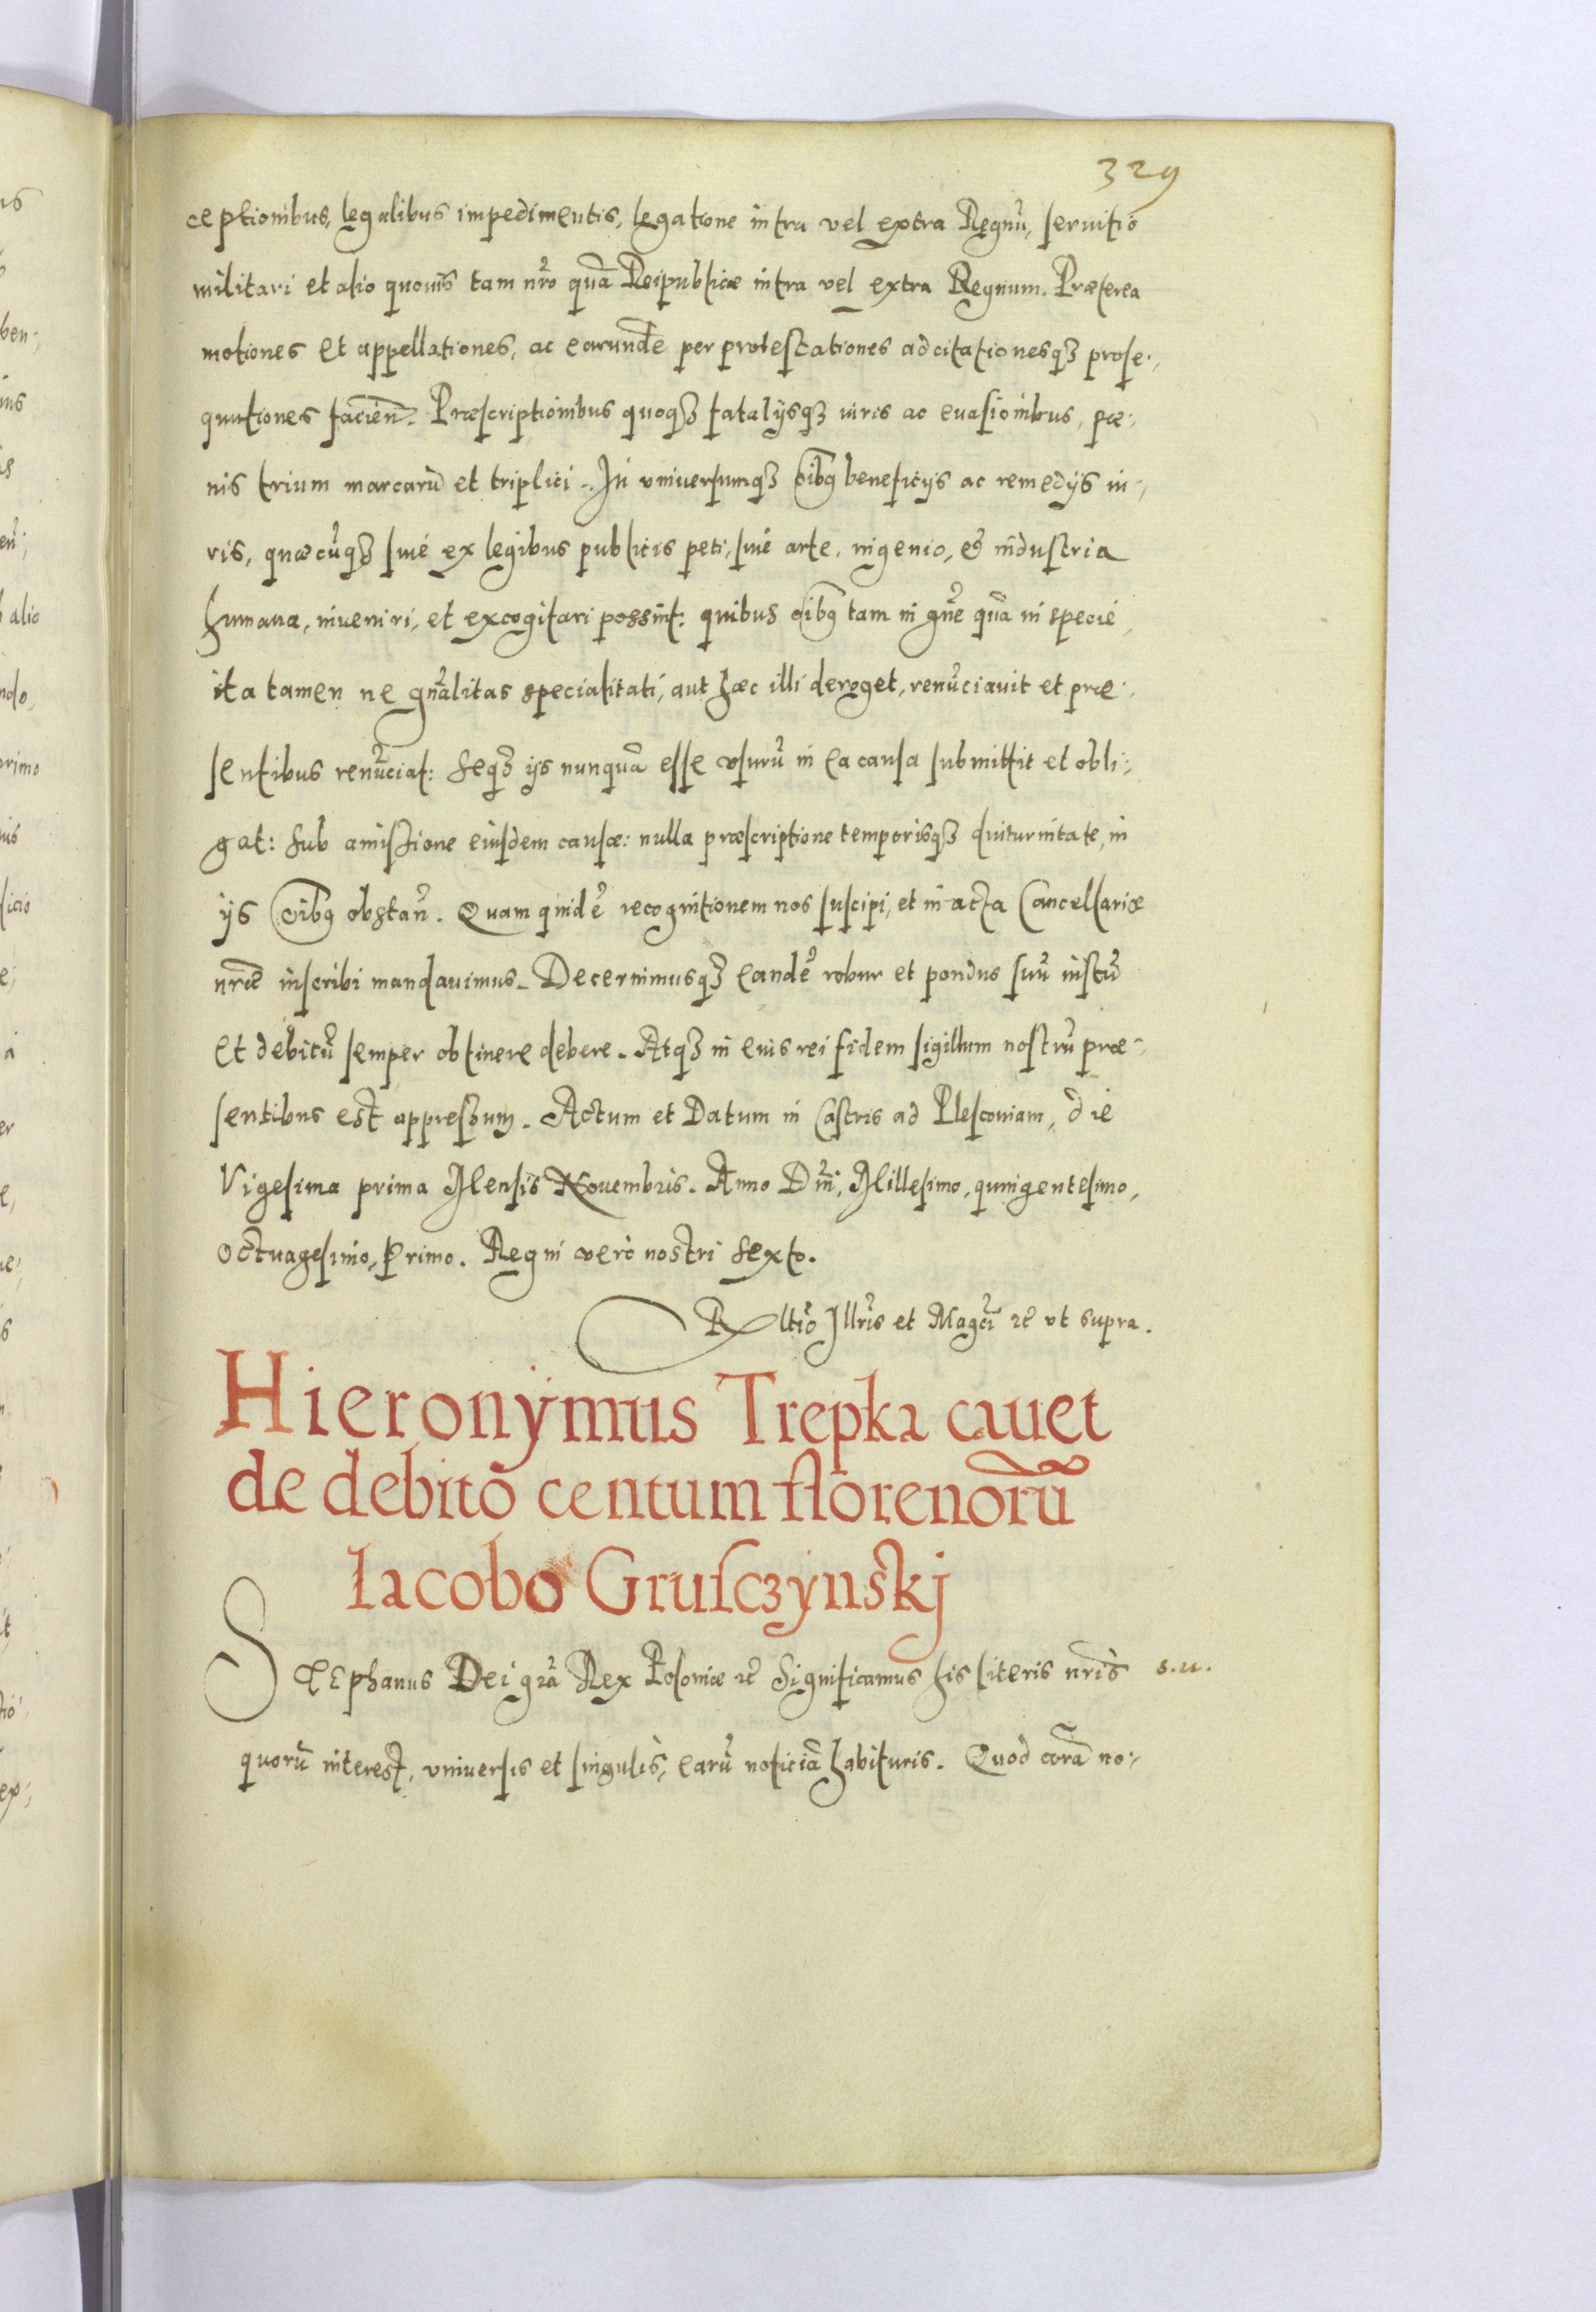 329
ceptionibus, legalibus impedimentis, legatione intra vel extra Regnũ, seruitio
militari et alio quouis tam nr̃o quã Reipublicæ intra vel extra Regnum. Præterea
motiones et appellationes, ac earundẽ per protestationes adcitationesqꝫ prose-
qutiones facien̄. Præscriptionibus quoqꝫ fatalijsqꝫ iuris ac euasionibus, pœ-
nis trium marcarũ et triplici. In vniuersumqꝫ oĩbꝰ beneficijs ac remedijs iu-
ris, quæcũqꝫ siue ex legibus publicis peti, siue arte, ingenio, et industria
humana, inueniri, et excogitari possint: quibus oĩbꝰ tam in gñe quã in specie
ita tamen ne gñalitas specialitati, aut hæc illi deroget, renũciauit et præ-
sentibus renũciat: seqꝫ ijs nunquã esse vsurũ in ea causa submittit et obli-
gat: sub amissione eiusdem causæ: nulla præscriptione temporisqꝫ diuturnitate, in
ijs oĩbꝰ obstañ. Quam quidẽ recognitionem nos suscipi, et in acta Cancellariæ
nr̃æ inscribi mandauimus. Decernimusqꝫ eandẽ robur et pondus suũ iustũ
et debitũ semper obtinere debere. Atqꝫ in eius rei fidem sigillum nostrũ præ-
sentibus est appressum. Actum et Datum in Castris ad Plesconiam, die
Vigesima prima Mensis Nouembris. Anno Dñi, Millesimo, quingentesimo,
octuagesimo, Primo. Regni vero nostri sexto.
Rltio Illr̃is et Magci ꝛc̃ vt supra.
Hieronymus Trepka cauet
de debito centum florenorũ
Iacobo Grusczynskj
Stephanus Dei gr̃a Rex Poloniæ ꝛc̃ Significamus his literis nr̃is s.u.
quorũ interest, vniuersis et singulis, earũ noticiã habituris. Quod corã no-